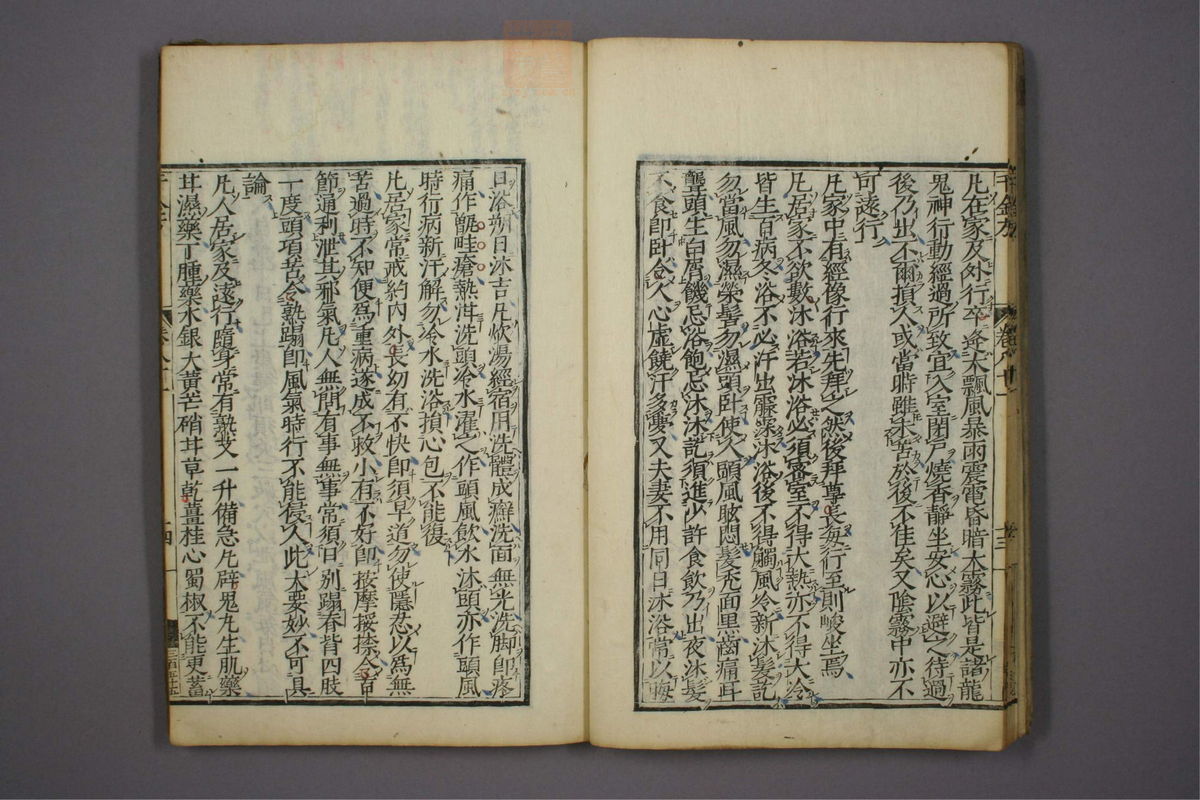 凡在家及外行卒逢大飄風暴雨震電昏暗大霧此皆是諸龍
鬼神行動經過所致宜入室閉戶燒香靜坐安心以避之待過
後乃出不爾損人或當時雖未苦於後不佳矣又陰霧中亦不
可遠行
凡家中有經像行來先拜之然後拜尊長每行至則峻坐焉
凡居家不欲數沐浴若沐浴必須密室不得大熱亦不得大冷
皆生百病冬浴不必汗出霢霂沐浴後不得觸風冷新沐髮訖
勿當風勿濕縈髻勿濕頭臥使人頭風眩悶髮禿面黑齒痛耳
聾頭生白屑饑忌浴飽忌沐沐訖須進少許食飲乃出夜沐髮
不食即臥令人心虛饒汗多夢又夫妻不用同日沐浴常以晦
千金方
卷八十一
十三
日浴朔日沐吉凡炊湯經宿用洗體成癬洗面無光洗脚即疼
痛作甑畦瘡熱泔洗頭冷水濯之作頭風飲水沐頭亦作頭風
時行病新汗解勿冷水洗浴損心包不能復
凡居家常戒約內外長幼有不快即須早道勿使隱忍以爲無
苦過時不知便爲重病遂成不救小有不好即按摩挼捺令百
節通利泄其邪氣凡人無問有事無事常須日別蹋脊背四肢
一度頭項苦令熟蹋即風氣時行不能侵人此大要妙不可具
論
凡人居家及遠行隨身常有熟艾一升備急凡辟鬼凡生肌藥
甘濕藥丁腫藥水銀大黃芒硝甘草乾薑桂心蜀椒不能更蓄
十四